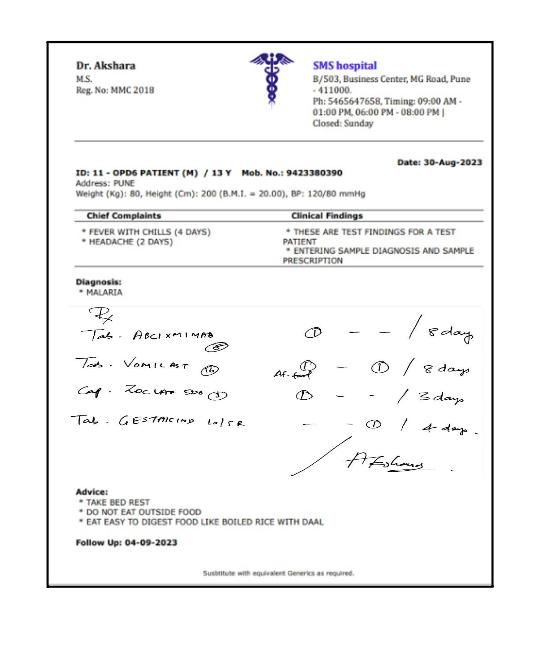 Dr. Akshara
M.S.
Reg. No: MMC 2018
SMS hospital
B/503, Business Center, MG Road, Pune
- 411000.
Ph: 5465647658, Timing: 09:00 AM -
01:00 PM, 06:00 PM - 08:00 PM |
Closed: Sunday
Date: 30-Aug-2023
ID: 11 - OPD6 PATIENT (M) / 13 Y Mob. No.: 9423380390
Address: PUNE
Weight (Kg): 80, Height (Cm): 200 (B.M.I. = 20.00), BP: 120/80 mmHg
Chief Complaints
* FEVER WITH CHILLS (4 DAYS)
* HEADACHE (2 DAYS)
Clinical Findings
* THESE ARE TEST FINDINGS FOR A TEST
PATIENT
* ENTERING SAMPLE DIAGNOSIS AND SAMPLE
PRESCRIPTION
Diagnosis:
* MALARIA
Rx
Tab. ABCIXMIMAB (8) 1 - - / 8 day
Tab. VOMILAST (16) Af. food 1 - 1 / 8 days
Cap. ZOCLAR 500 (3) 1 - - / 3 days
Tab. GESTAKIND 10/SR - - 1 / 4 day.
Akshara
Advice:
* TAKE BED REST
* DO NOT EAT OUTSIDE FOOD
* EAT EASY TO DIGEST FOOD LIKE BOILED RICE WITH DAAL
Follow Up: 04-09-2023
Susbtitute with equivalent Generics as required.